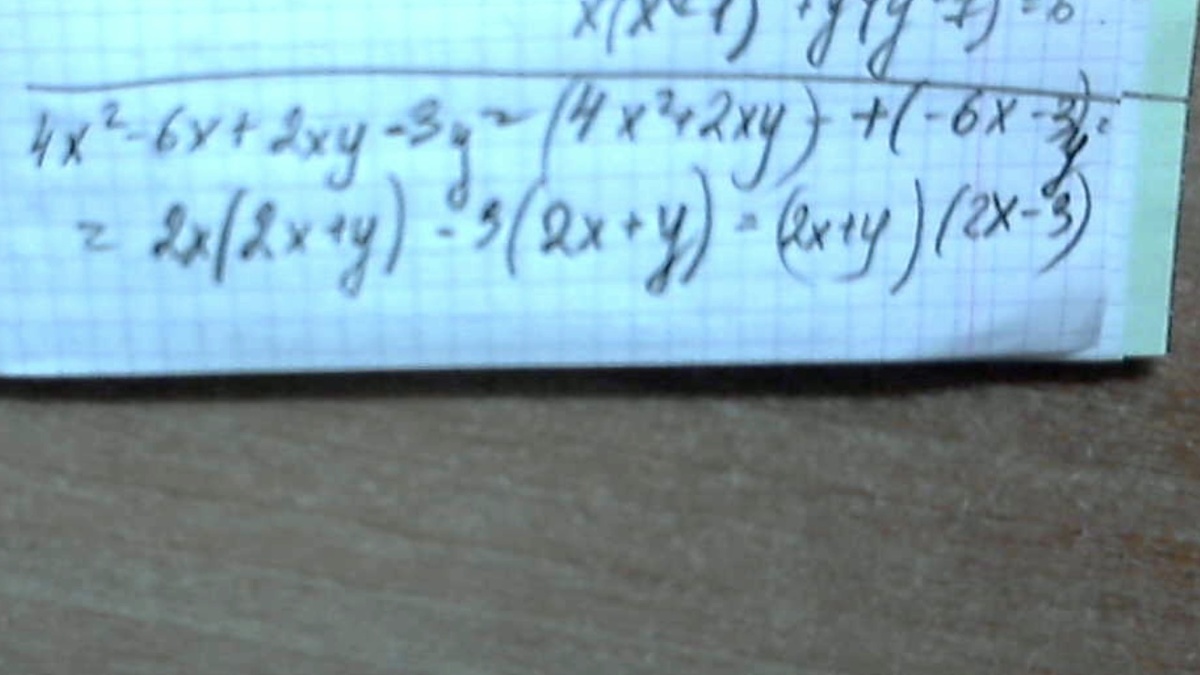 4x²-6x+2xy-3y=(4x²+2xy)+(-6x-3y)=
=2x(2x+y)-3(2x+y)=(2x+y)(2x-3)